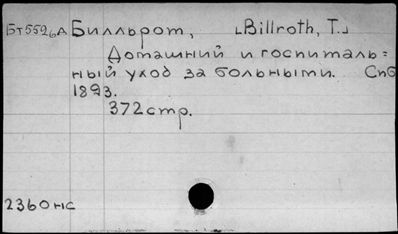 Бт5526А Билльрот, [Billroth, T.]
Домашний и госпиталь=
ный уход за больными. Спб
1893.
372стр.
2360нс